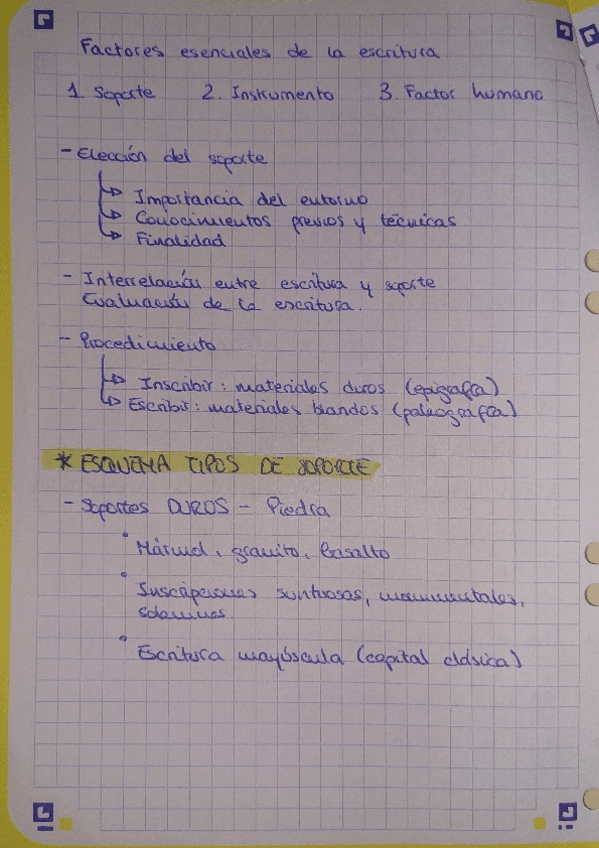 Factores esenciales de la escritura
1. Soporte 2. Instrumento 3. Factor humano
- Elección del soporte
↳ Importancia del entorno
↳ Conocimientos previos y técnicas
↳ Finalidad
- Interrelación entre escritura y soporte
Evaluación de la escritura.
- Procedimiento
↳ Inscribir: materiales duros (epigrafía)
↳ Escribir: materiales blandos (paleografía)
* ESQUEMA TIPOS DE SOPORTE
- Soportes DUROS - Piedra
• Mármol, granito, basalto
• Inscripciones suntuosas, monumentales,
solemnes.
• Escritura mayúscula (capital clásica)